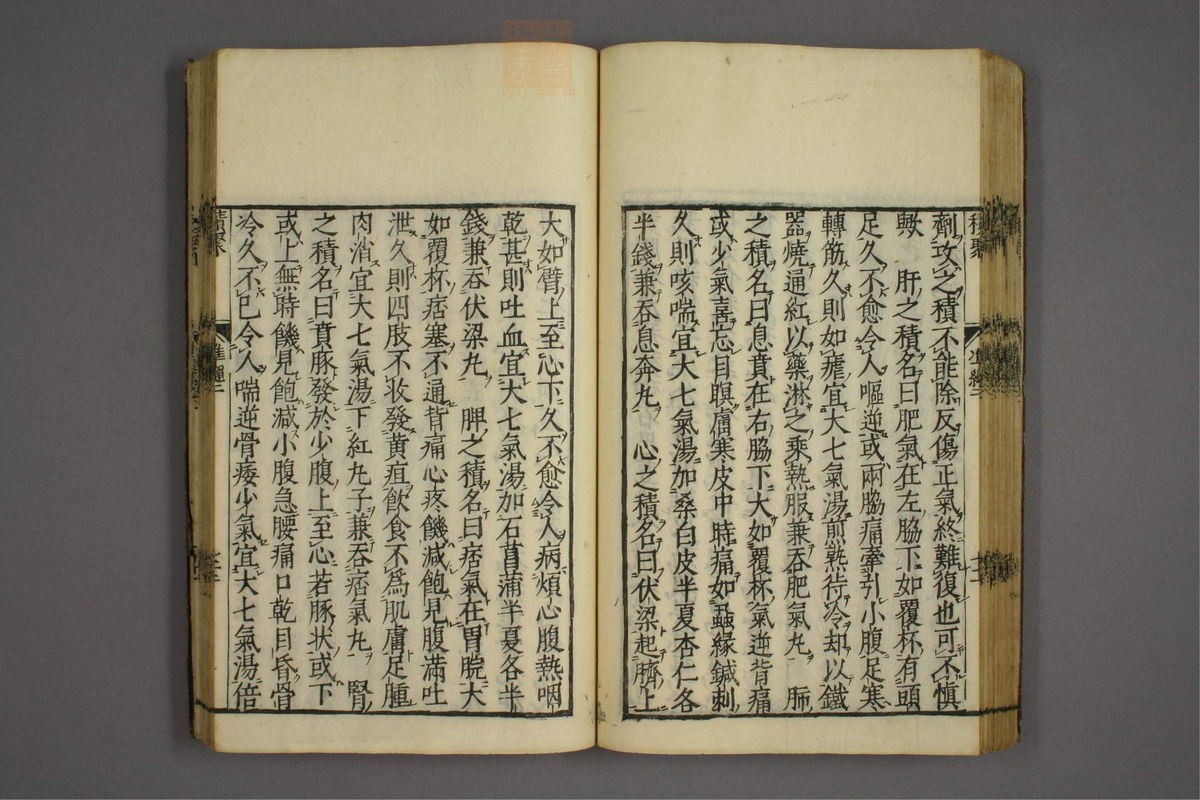 劑攻之積不能除反傷正氣終難復也可不慎
歟　肝之積名曰肥氣在左脇下如覆杯有頭
足久不愈令人嘔逆或兩脇痛牽引小腹足寒
轉筋久則如瘧宜大七氣湯煎熟待冷却以鐵
器燒通紅以藥淋之乘熱服兼吞肥氣丸　肺
之積名曰息賁在右脇下大如覆杯氣逆背痛
或少氣喜忘目瞑膚寒皮中時痛如蝨緣鍼刺
久則咳喘宜大七氣湯加桑白皮半夏杏仁各
半錢兼吞息奔丸　心之積名曰伏梁起臍上
大如臂上至心下久不愈令人病煩心腹熱咽
乾甚則吐血宜大七氣湯加石菖蒲半夏各半
錢兼吞伏梁丸　脾之積名曰痞氣在胃脘大
如覆杯痞塞不通背痛心疼饑減飽見腹滿吐
泄久則四肢不收發黃疸飲食不爲肌膚足腫
肉消宜大七氣湯下紅丸子兼吞痞氣丸　腎
之積名曰賁豚發於少腹上至心若豚狀或下
或上無時饑見飽減小腹急腰痛口乾目昏骨
冷久不已令人喘逆骨痿少氣宜大七氣湯倍
積聚